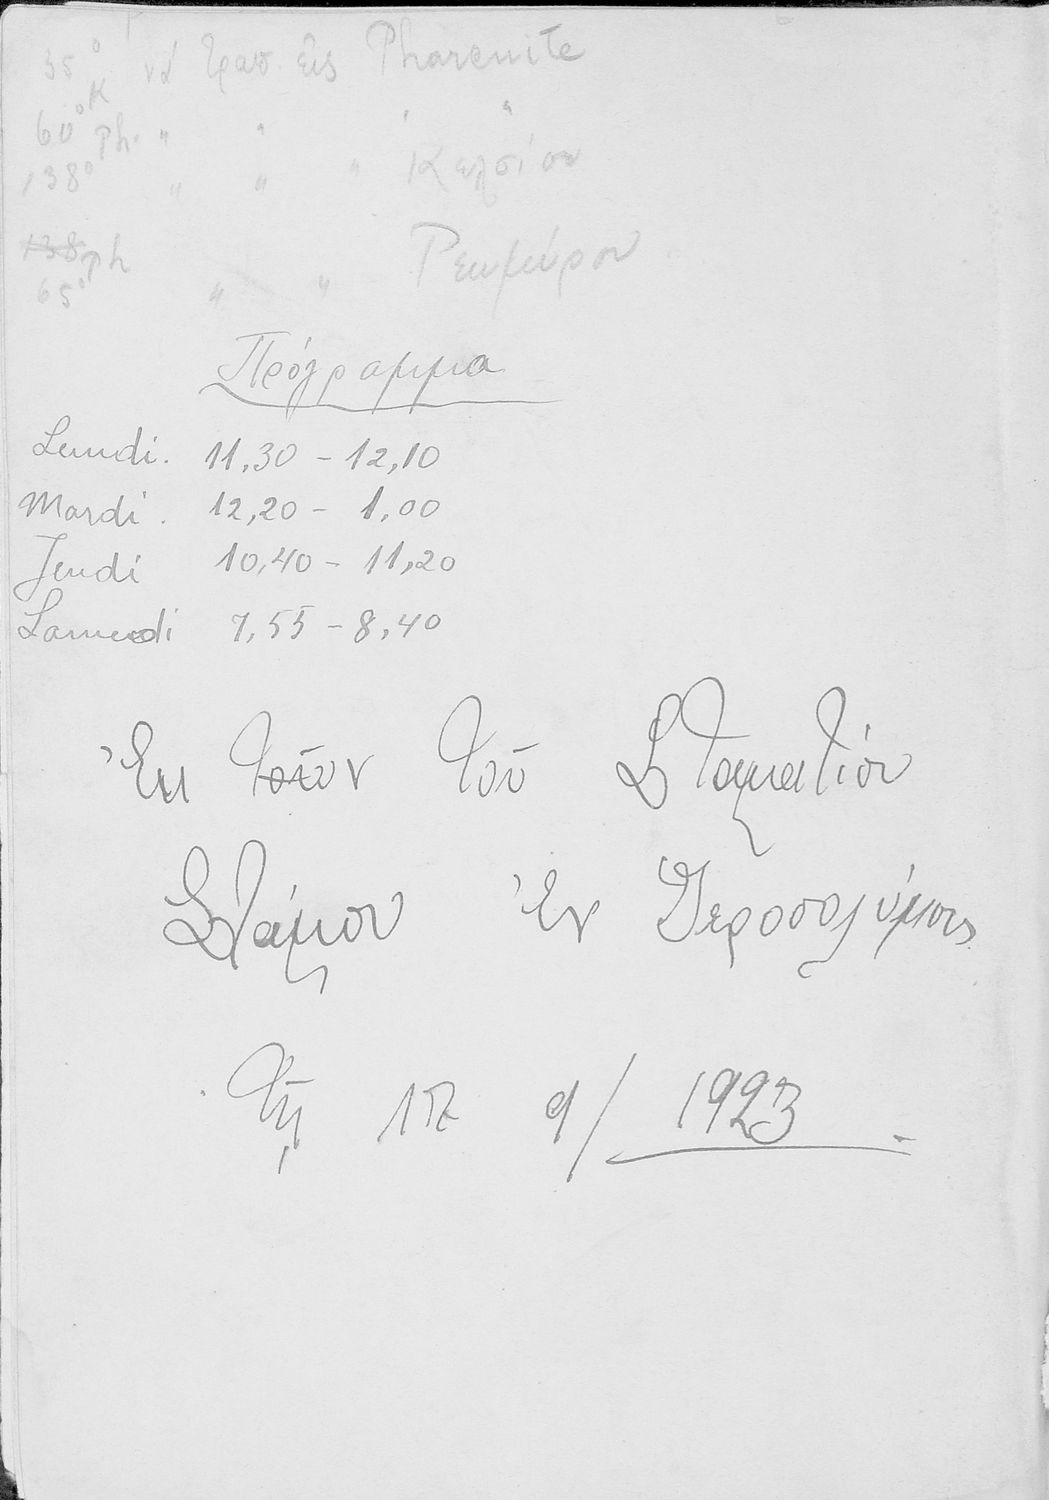 35° Κ νά τραπ. εἰς Pharenite
60° Ph. " " " "
138° " " " Κελσίου
138 ph
65° " " Ρεωμύρου
Πρόγραμμα
Lundi. 11,30 - 12,10
Mardi. 12,20 - 1,00
Jeudi 10,40 - 11,20
Samedi 7,55 - 8,40
Ἐκ τῶν τοῦ Σταματίου
Σλάμου Ἐν Ἱεροσολύμοις
τῇ 17 9/ 1923.